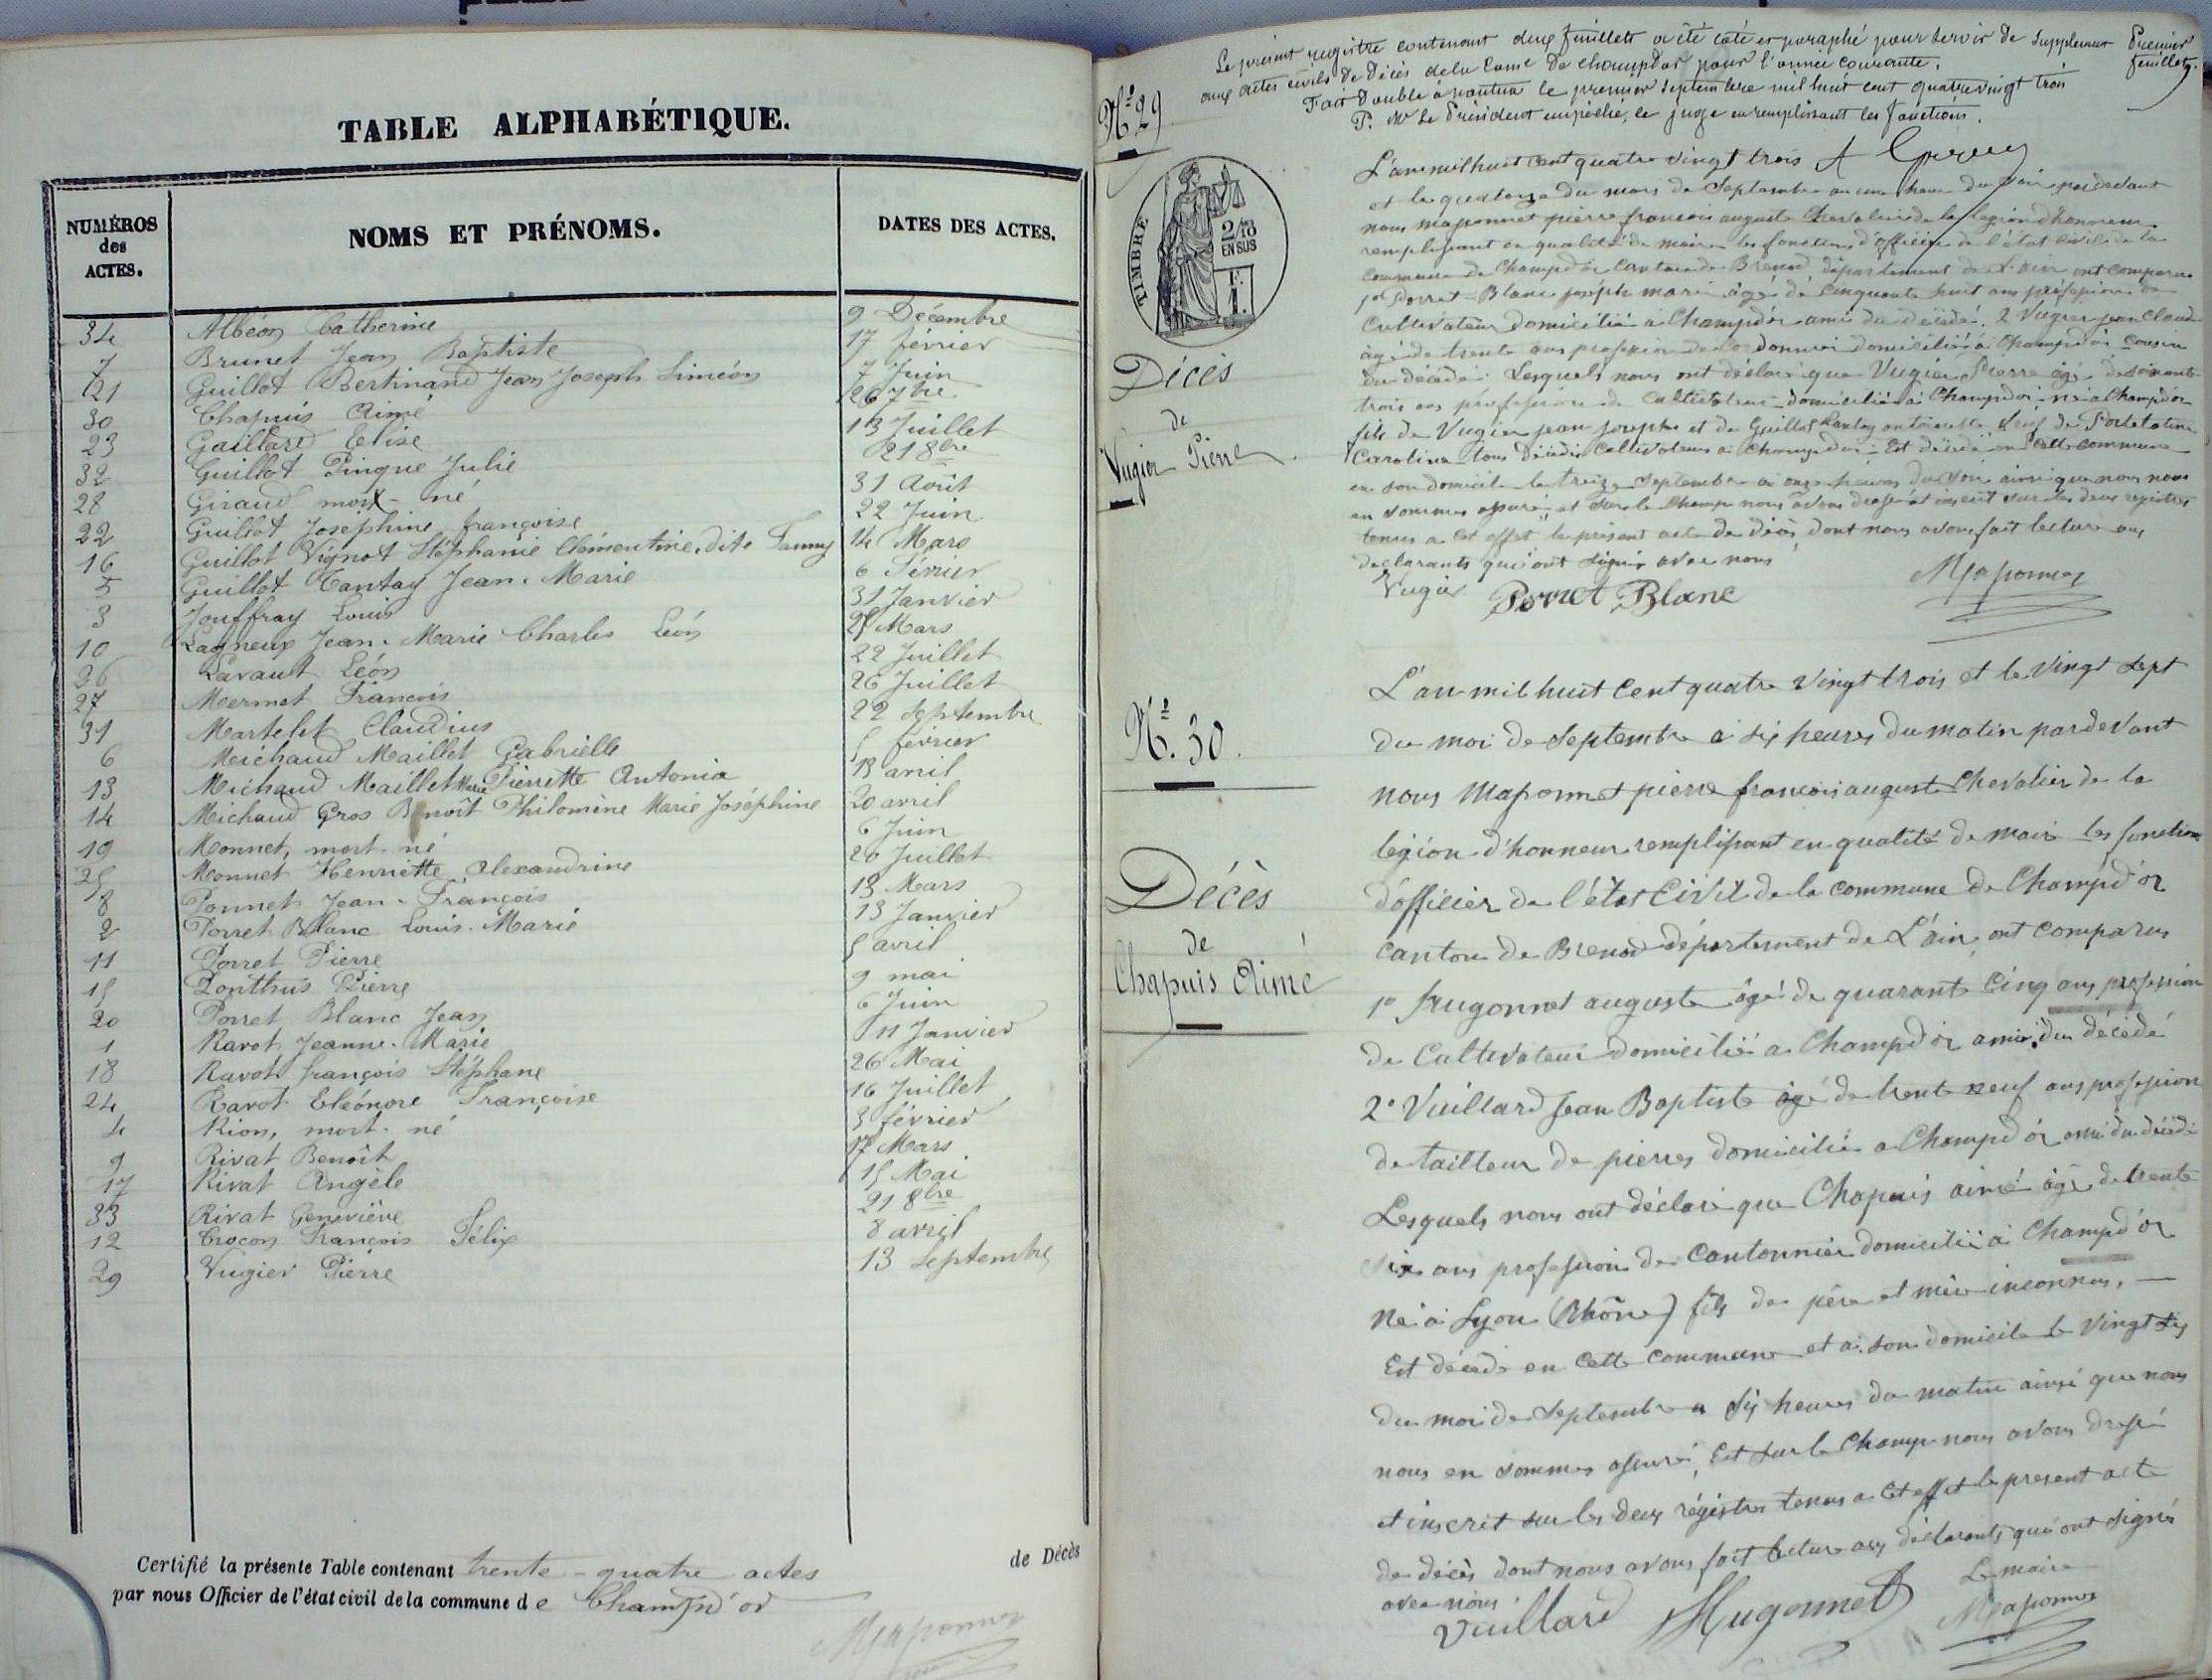 TABLE ALPHABÉTIQUE.
NUMÉROS des ACTES.
NOMS ET PRÉNOMS.
DATES DES ACTES.
34 Albéon Catherine 9 Décembre
7 Brunet Jean Baptiste 17 février
21 Guillot Bertinand Jean Joseph Siméon 7 Juin
30 Chapuis Aimé 26 7bre
23 Gaillard Elise 13 Juillet
32 Guillot Pinque Julie 21 8bre
28 Giraud mort-né 31 Août
22 Guillot Joséphine françoise 22 Juin
16 Guillot Vignot Stéphanie Clémentine, dite Fanny 14 Mars
5 Guillot Tantay Jean-Marie 6 Février
3 Jouffray Louis 31 Janvier
10 Lagneux Jean-Marie Charles Léon Mars
26 Lavault Léon 22 Juillet
27 Mermet François 26 Juillet
31 Martelet Claudius 22 Septembre
6 Michaud Maillet Gabrielle 5 février
13 Michaud Maillet Marie Pierrette Antonia 13 avril
14 Michaud Gros Benoît Philomène Marie Joséphine 20 avril
19 Monnet, mort-né 6 Juin
25 Monnet Henriette Alexandrine 20 Juillet
8 Ponnet Jean-François 13 Mars
2 Porret Blanc Louis-Marie 13 Janvier
11 Porret Pierre 5 avril
15 Ponthus Pierre 9 mai
20 Porret Blanc Jean 6 Juin
1 Ravot Jeanne-Marie 11 Janvier
18 Ravot françois Stéphane 26 Mai
24 Ravot Eléonore Françoise 16 Juillet
4 Rion, mort-né 3 février
9 Rivat Benoît 17 Mars
17 Rivat Angèle 15 Mai
33 Rivat Geneviève 21 8bre
12 Trocon François Félix 8 avril
29 Vugier Pierre 13 Septembre
Certifié la présente Table contenant trente-quatre actes de Décès
par nous Officier de l'état civil de la commune de Champd'or
Maponnet
Le présent registre contenant deux feuillets a été coté et paraphé pour servir de supplément
Premier feuillet.
aux actes civils de Décès de la Come de champdor pour l'année courante.
Fait double à nantua le premier Septembre mil huit cent quatre vingt trois
P. Mr Le Président empêché, le juge en remplissant les fonctions.
N° 29
TIMBRE
2/10 EN SUS
F. 1.
Décès
de
Vugier Pierre
L'an mil huit cent quatre vingt trois
et le quatorze du mois de Septembre a une heure du soir pardevant
nous Maponnet pierre francois auguste Chevalier de la légion d'honneur
remplissant en qualité de maire les fonctions d'officier de l'état Civil de la
commune de Champd'or Canton de Brenod, département de L'ain ont comparus
1° Porret-Blanc joseph marie âgé de Cinquante huit ans profession de
Cultivateur domicilié a Champd'or ami du décédé. 2 Vugier jean Claude
âgé de trente ans profession de Cordonnier domicilié a Champd'or Cousin
du décédé. Lesquels nous ont déclaré que Vugier Pierre âgé de soixante
trois ans profession de Cultivateur domicilié a Champdor, né a Champd'or
fils de Vugier jean joseph et de Guillot Tantay antoinette Veuf de
Carolina tous décédés Cultivateurs a Champdor. Est décédé en Cette commune
en son domicile le treize Septembre a onze heures du soir ainsi que nous nous
en sommes assuré, et sur le champ nous avons dressé et inscrit sur les deux registres
tenus a Cet effet le présent acte de décès, dont nous avons fait lecture aux
déclarants qui ont signé avec nous
Vugier Porret Blanc Maponnet
N° 30.
Décès
de
Chapuis Aimé
L'an mil huit Cent quatre vingt trois et le vingt sept
du moi de Septembre a six heures du matin pardevant
nous Maponnet pierre francois auguste Chevalier de la
légion d'honneur remplissant en qualité de maire les fonctions
d'officier de l'état Civil de la commune de Champd'or
Canton de Brenod département de L'ain, ont comparus
1° Hugonnet auguste âgé de quarante Cinq ans profession
de Cultivateur domicilié a Champd'or ami du décédé
2° Vuillard Jean Baptiste âgé de trente neuf ans profession
de tailleur de pierres domicilié a Champd'or ami du décédé
Lesquels nous ont déclaré que Chapuis aimé âgé de trente
six ans profession de Cantonnier domicilié a Champd'or
Né a Lyon (Rhône) fils de père et mère inconnus,
Est décédé en Cette commune et a son domicile le Vingt six
du moi de Septembre a six heures du matin ainsi que nous
nous en sommes assuré, Et sur le Champ nous avons dressé
et inscrit sur les deux régistres tenus a Cet effet le present acte
de décès dont nous avons fait lecture aux déclarants qui ont signé
avec nous.
Le maire
Vuillard Hugonnet Maponnet